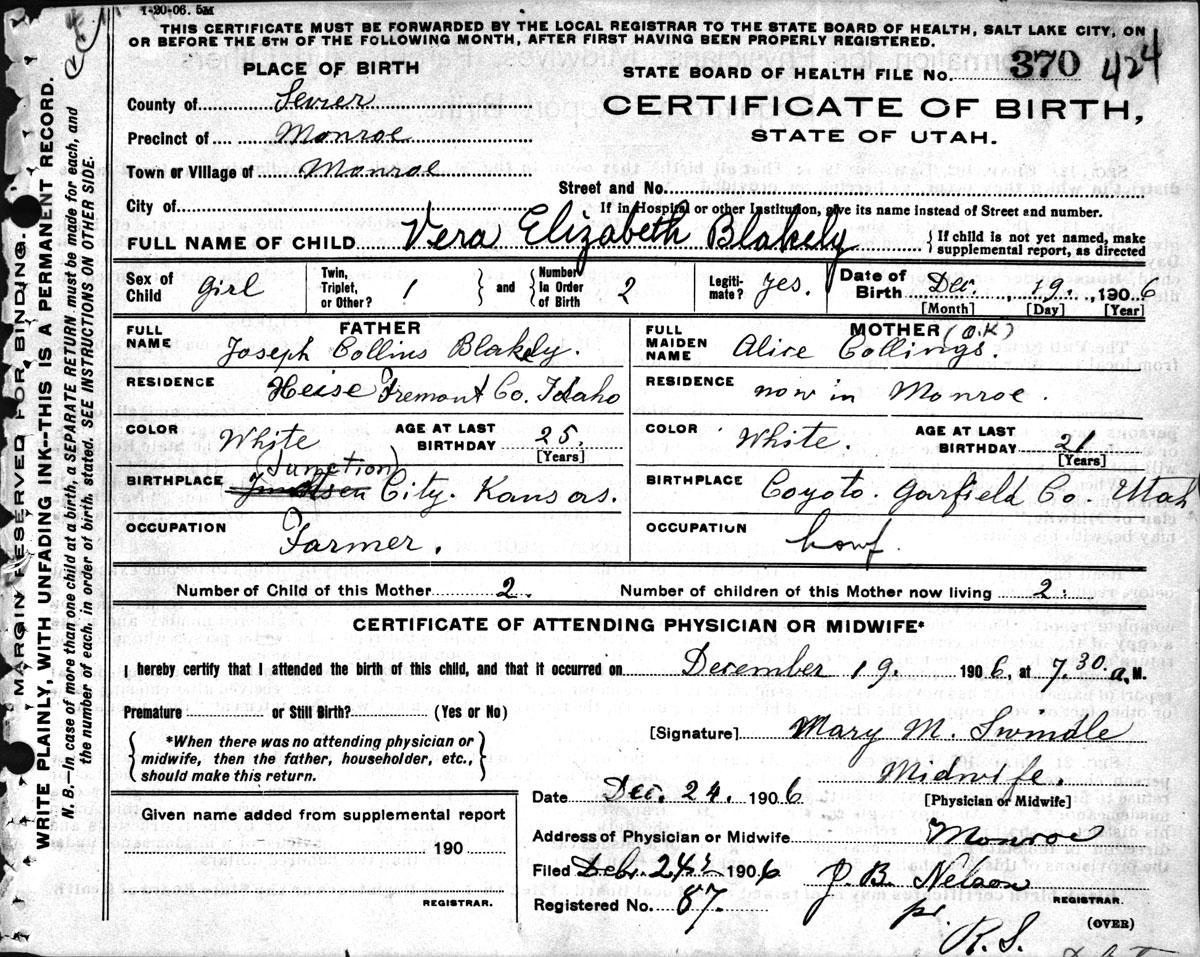 1-20-06. 5M
THIS CERTIFICATE MUST BE FORWARDED BY THE LOCAL REGISTRAR TO THE STATE BOARD OF HEALTH, SALT LAKE CITY, ON
OR BEFORE THE 5TH OF THE FOLLOWING MONTH, AFTER FIRST HAVING BEEN PROPERLY REGISTERED.
MARGIN RESERVED FOR BINDING.
WRITE PLAINLY, WITH UNFADING INK--THIS IS A PERMANENT RECORD.
N. B. In case of more than one child at a birth, a SEPARATE RETURN must be made for each, and
the number of each, in order of birth, stated. SEE INSTRUCTIONS ON OTHER SIDE.
PLACE OF BIRTH
STATE BOARD OF HEALTH FILE No. 370 424
County of Sevier
CERTIFICATE OF BIRTH,
Precinct of Monroe
STATE OF UTAH.
Town or Village of Monroe
Street and No.
City of
If in Hospital or other Institution, give its name instead of Street and number.
FULL NAME OF CHILD Vera Elizabeth Blakely
{ If child is not yet named, make
supplemental report, as directed
Sex of Child Girl
Twin, Triplet, or Other? 1 } and { Number In Order of Birth 2
Legitimate? Yes.
Date of Birth Dec. 19. 1906
[Month] [Day] [Year]
FATHER
MOTHER (O.K)
FULL NAME Joseph Collins Blakely.
FULL MAIDEN NAME Alice Collings.
RESIDENCE Heise Fremont Co. Idaho
RESIDENCE now in Monroe.
COLOR White AGE AT LAST BIRTHDAY 25. [Years]
COLOR White. AGE AT LAST BIRTHDAY 21 [Years]
(Junction)
BIRTHPLACE City. Kansas.
BIRTHPLACE Coyoto. Garfield Co. Utah
OCCUPATION Farmer.
OCCUPATION howf.
Number of Child of this Mother 2. Number of children of this Mother now living 2.
CERTIFICATE OF ATTENDING PHYSICIAN OR MIDWIFE*
I hereby certify that I attended the birth of this child, and that it occurred on December 19. 1906, at 7.30. a.M.
Premature or Still Birth? (Yes or No)
{ *When there was no attending physician or
midwife, then the father, householder, etc.,
should make this return. }
[Signature] Mary M. Swindle
Midwife.
[Physician or Midwife]
Date Dec. 24. 1906
Given name added from supplemental report
190
REGISTRAR.
Address of Physician or Midwife Monroe
Filed 24 1906 J. B. Nelson
REGISTRAR.
Registered No. 87.
pr.
R.S.
(OVER)